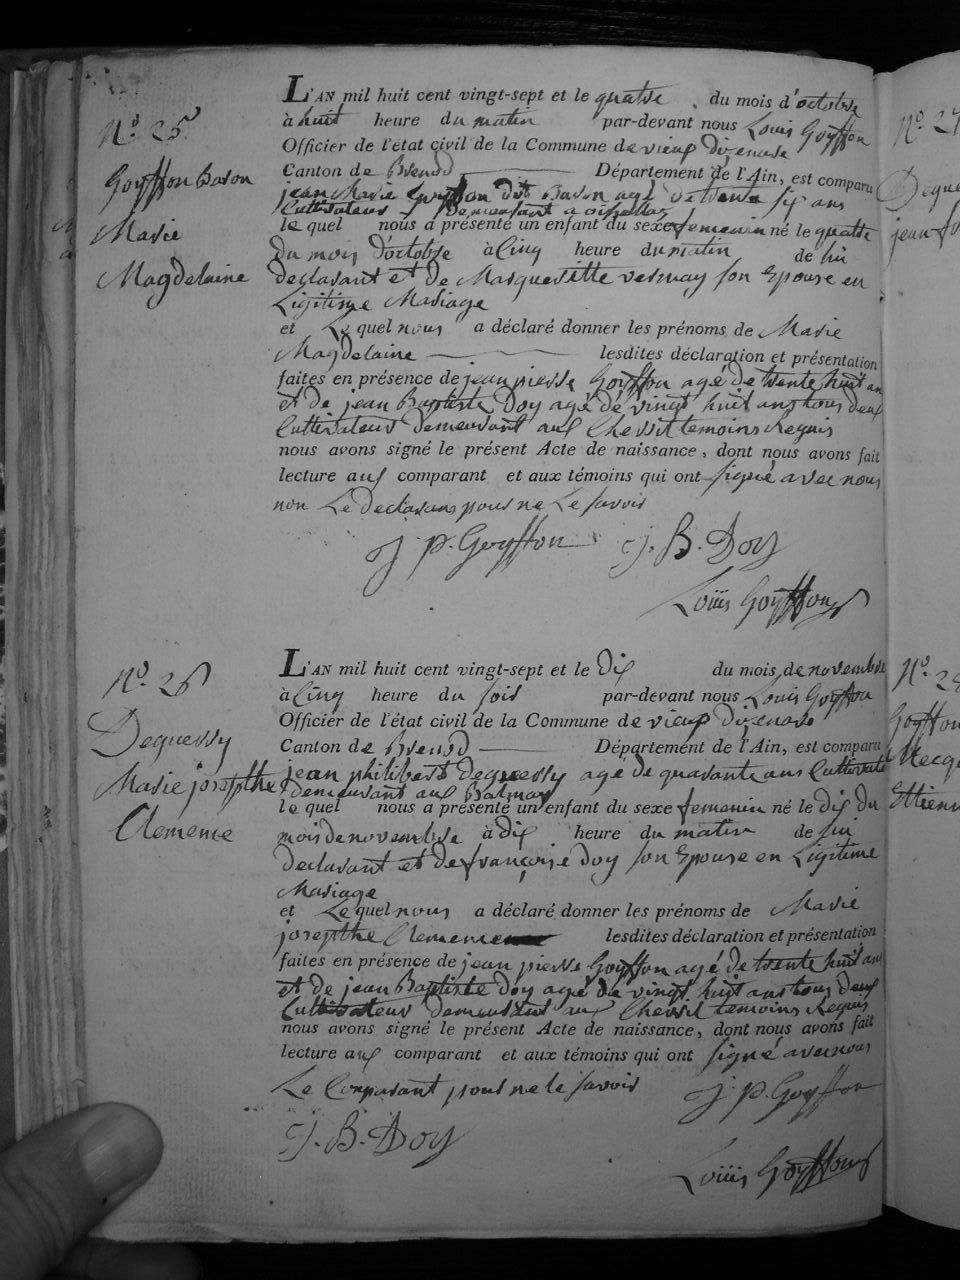 N.º 25
Goyffon Bavon
Marie
Magdelaine
L'AN mil huit cent vingt-sept et le quatre du mois d'octobre
à huit heure du matin par-devant nous Louis Goyffon
Officier de l'état civil de la Commune de vieux dizenave
Canton de Brenod Département de l'Ain, est comparu
jean Marie Goyffon dit Bavon agé de trente six ans
Cultivateur demeurant a
le quel nous a présenté un enfant du sexe femenin né le quatre
du mois d'octobre à Cinq heure du matin de lui
declarant et de Margueritte vernay son Epouse en
Ligitime Mariage
et Le quel nous a déclaré donner les prénoms de Marie
Magdelaine lesdites déclaration et présentation
faites en présence de jean pierre Goyffon agé de trente huit an
et de jean Baptiste Doy agé de vingt huit ans tous deux
Cultivateur demeurant aux Chevril temoins Requis
nous avons signé le présent Acte de naissance, dont nous avons fait
lecture aux comparant et aux témoins qui ont signé avec nous
non Le declarans pour ne Le savoir
J. P. Goyffon J. B. Doy
Louis Goyffon
N.º 26
Dequessy
Marie josepthe
Clemence
L'AN mil huit cent vingt-sept et le dix du mois de novembre
à Cinq heure du soir par-devant nous Louis Goyffon
Officier de l'état civil de la Commune de vieux dizenave
Canton de Brenod Département de l'Ain, est comparu
jean philibert dequessy agé de quarante ans Cultivate
demeurant aux Balmay
le quel nous a présenté un enfant du sexe femenin né le dix du
mois de novembre à dix heure du matin de lui
declarant et de françoise doy son Epouse en Ligitime
Mariage
et Le quel nous a déclaré donner les prénoms de Marie
josepthe Clemence lesdites déclaration et présentation
faites en présence de jean pierre Goyffon agé de trente huit an
et de jean Baptiste Doy agé de vingt huit ans tous deux
Cultivateur demeurant aux Chevril temoins Requis
nous avons signé le présent Acte de naissance, dont nous avons fait
lecture aux comparant et aux témoins qui ont signé avec nous
Le Comparant pour ne le savoir J. P. Goyffon
J. B. Doy
Louis Goyffon
N.º 27
Deque
jean
N.º 28
Goyffon
Ettienn